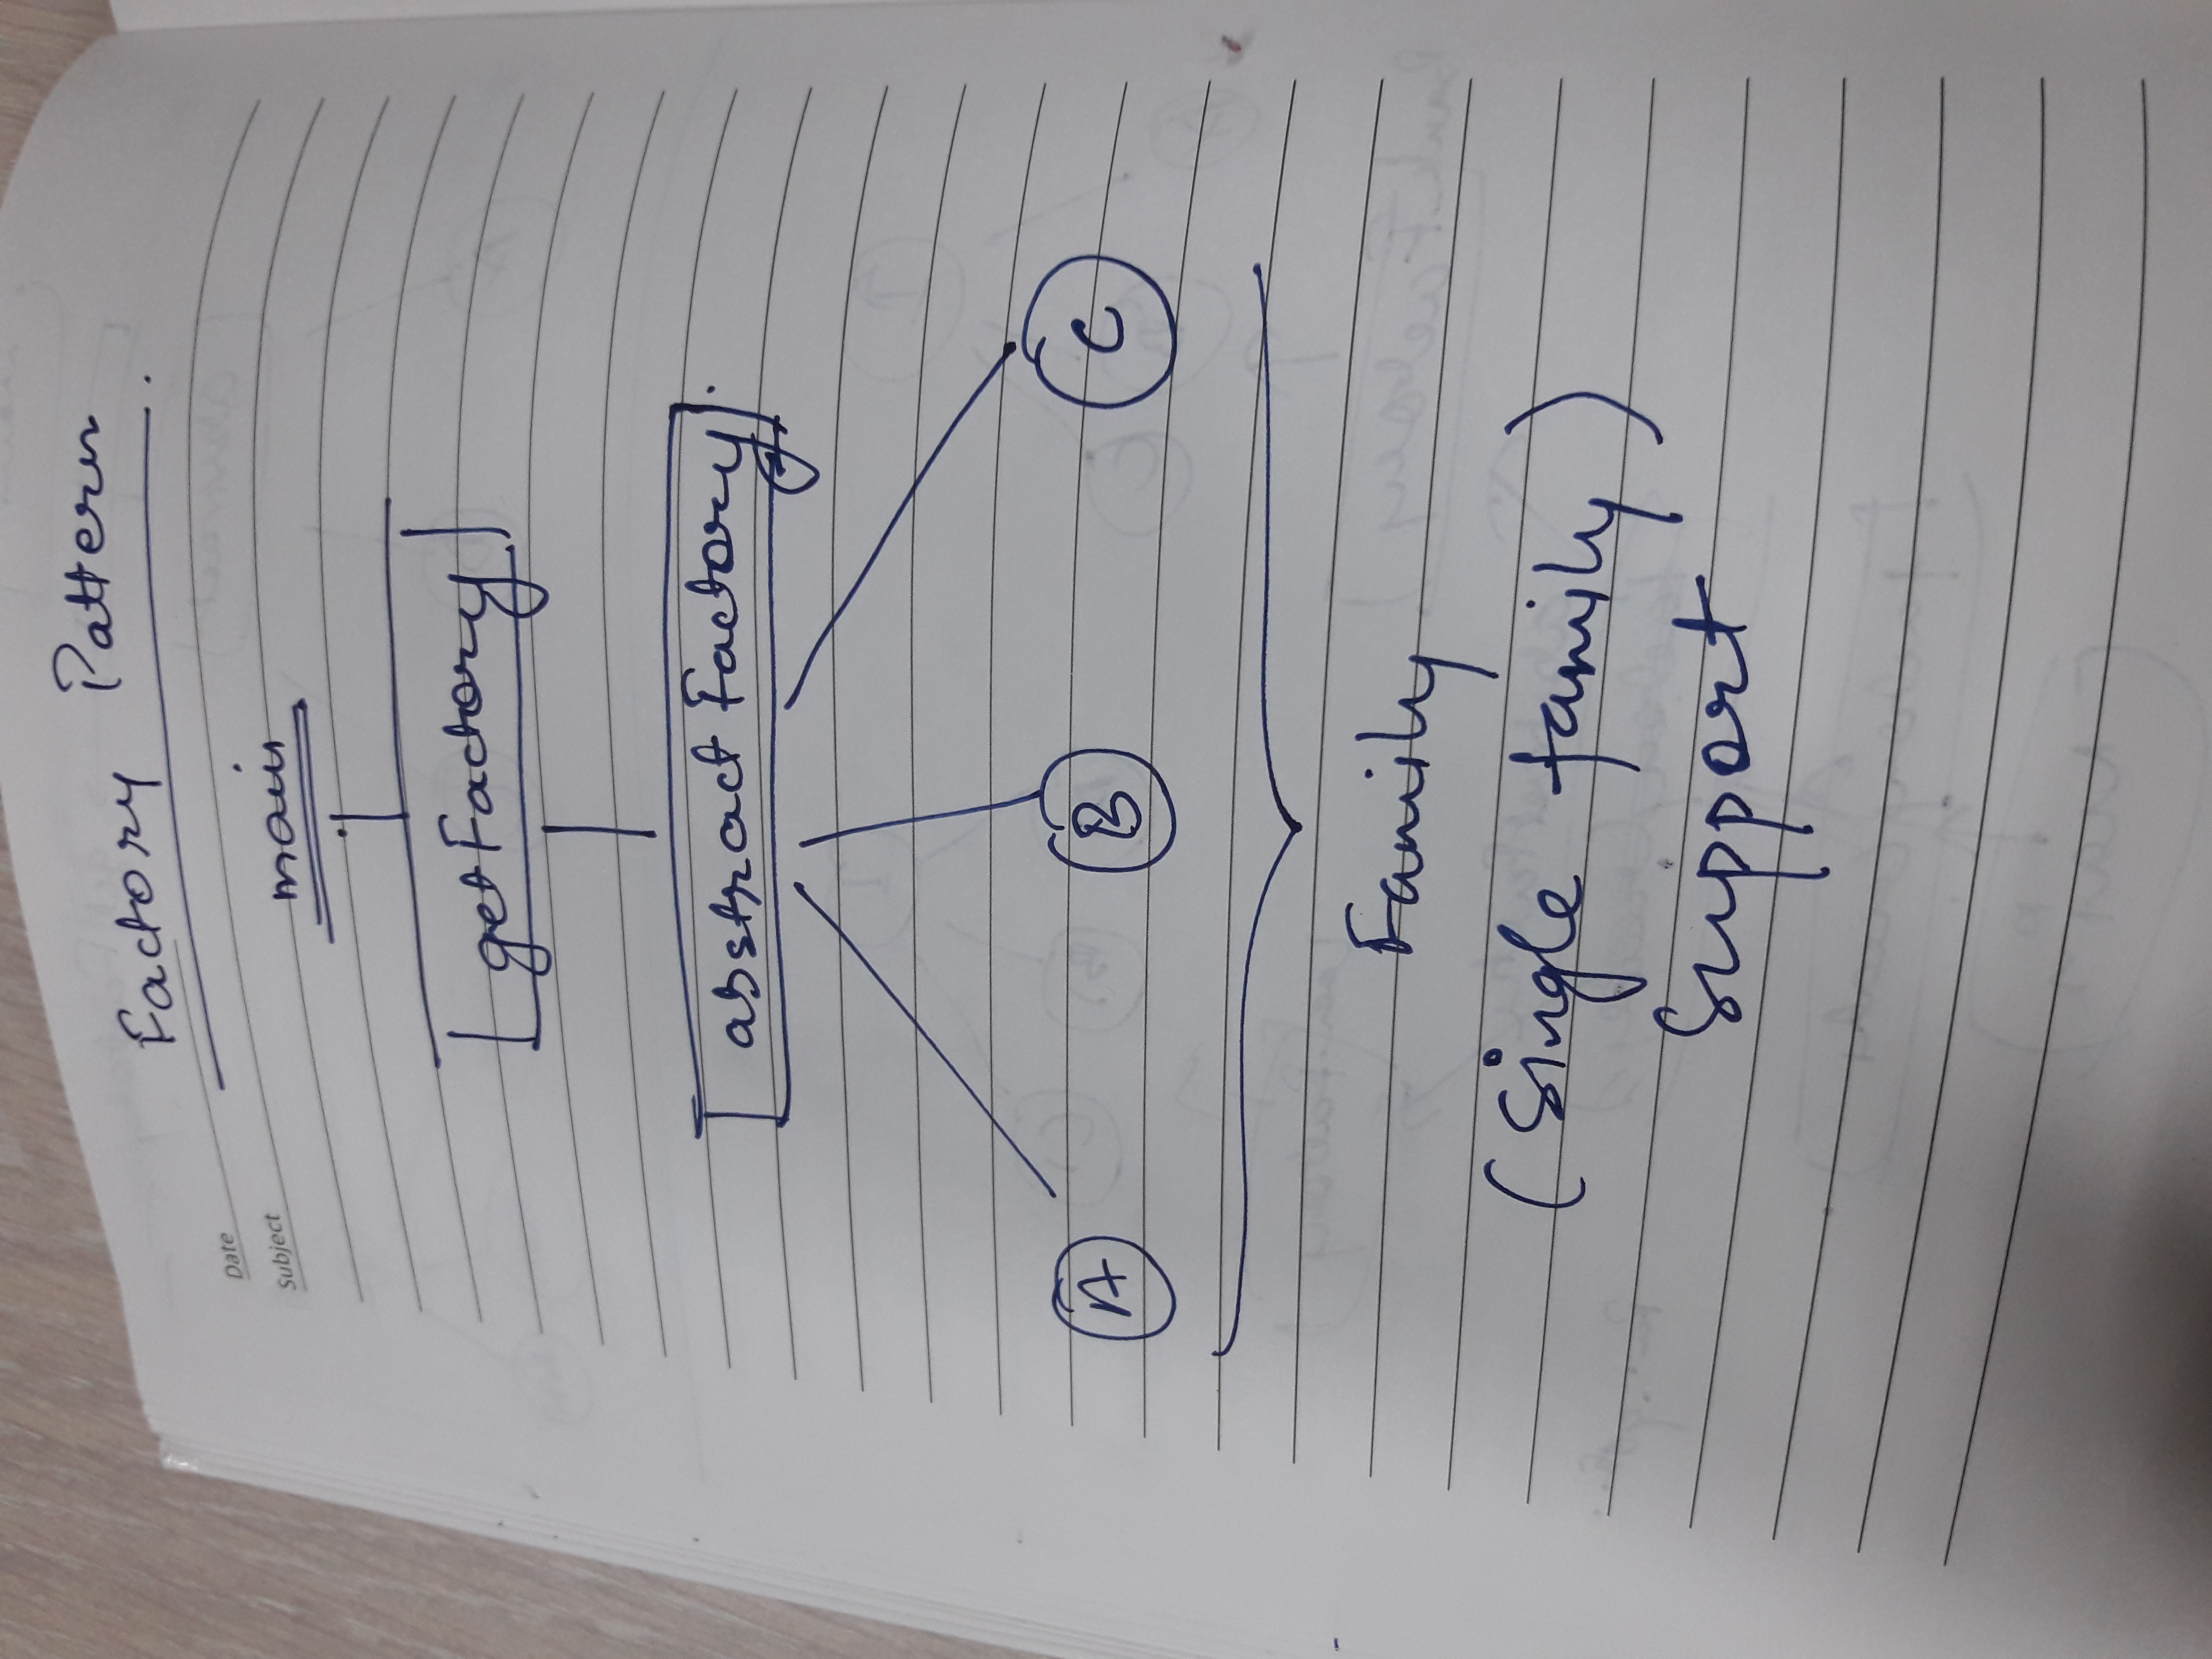 Factory Pattern
Date
Subject
main
getFactory
abstract Factory
A B C
Family
(Single family)
Support